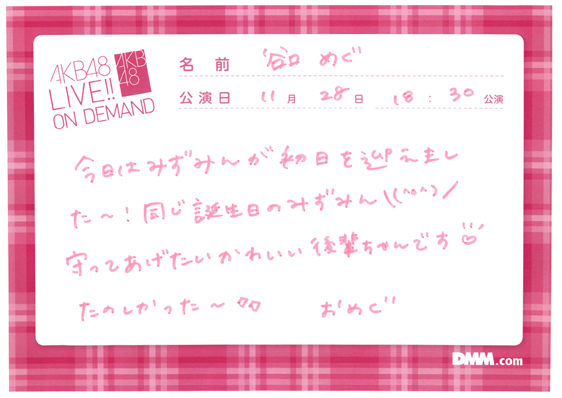 AKB48
LIVE!!
ON DEMAND
AKB
48
名前 谷口 めぐ
公演日 11月 28日 18:30公演
今日はみずみんが初日を迎えまし
た〜!同じ誕生日のみずみん\(^o^)/
守ってあげたいかわいい後輩ちゃんです
たのしかった〜 おめぐ
DMM.com